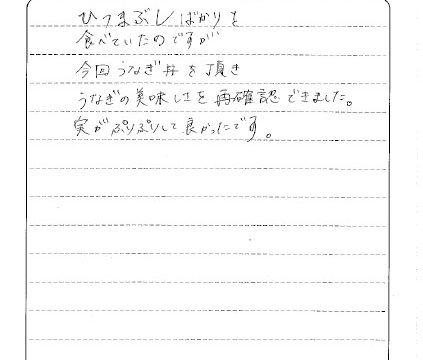 ひつまぶしばかりを
食べていたのですが
今回うなぎ丼を頂き
うなぎの美味しさを再確認できました。
実がぷりぷりして良かったです。